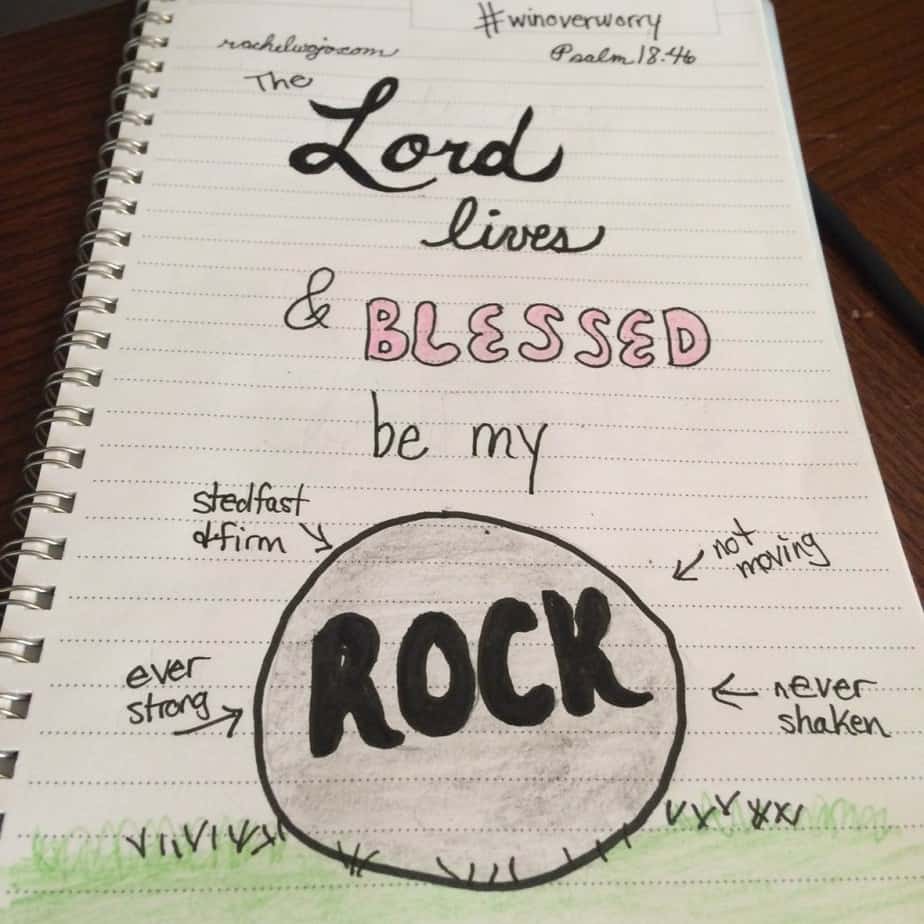 #winoverworry
rachelwojo.com
Psalm 18:46
The
Lord
lives
& BLESSED
be my
stedfast
& firm
not
moving
ROCK
ever
strong
never
shaken